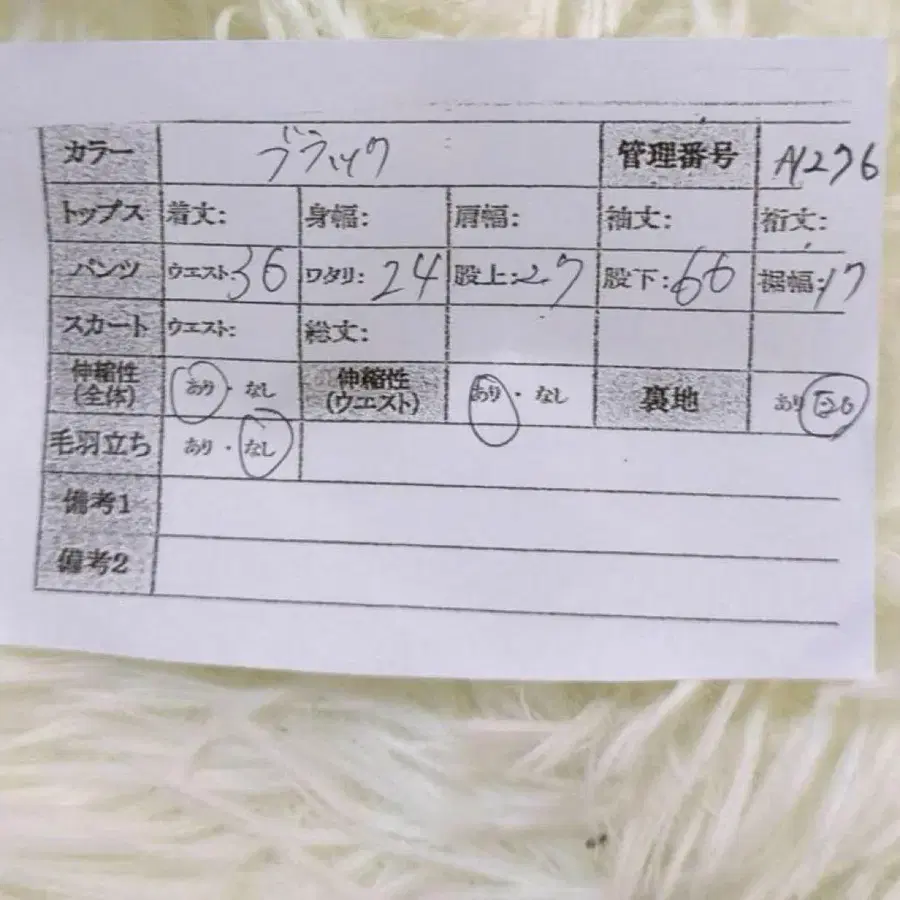 カラー ブラック 管理番号 A1276
トップス 着丈: 身幅: 肩幅: 袖丈: 裄丈:
パンツ ウエスト:36 ワタリ:24 股上:27 股下:66 裾幅:17
スカート ウエスト: 総丈:
伸縮性(全体) あり・なし 伸縮性(ウエスト) あり・なし 裏地 あり
毛羽立ち あり・なし
備考1
備考2